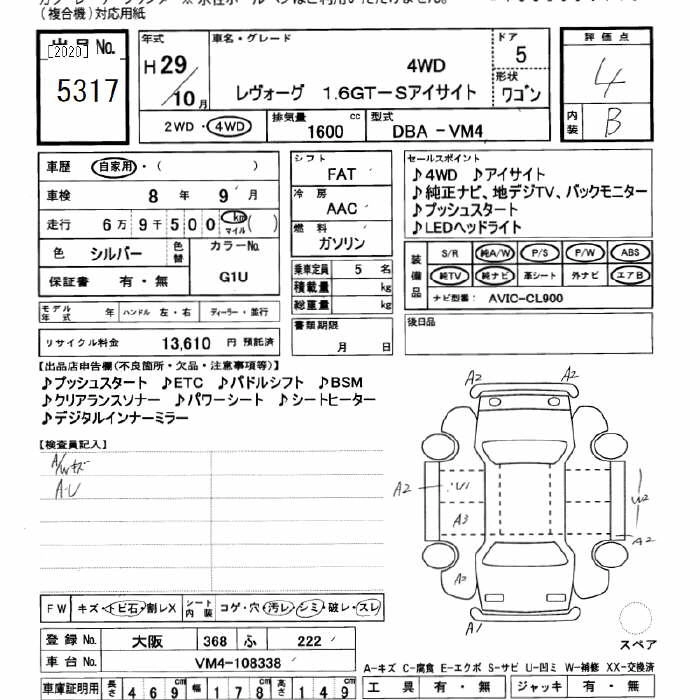 (複合機)対応用紙
出品No.
[2020]
5317
年式
H 29
10 月
車名・グレード
4WD
レヴォーグ 1.6GT-Sアイサイト
ドア
5
形状
ワゴン
2WD・4WD
排気量
1600 cc
型式
DBA-VM4
評価点
4
内装
B
車歴 自家用・( )
車検 8 年 9 月
走行 6万9千500 km マイル ( )
色 シルバー 色替
カラーNo.
G1U
保証書 有・無
モデル年式 年 ハンドル 左・右 ディーラー・並行
リサイクル料金 13,610 円 預託済
シフト
FAT
冷房
AAC
燃料
ガソリン
乗車定員 5 名
積載量 kg
総重量 kg
書類期限
月 日
セールスポイント
♪4WD ♪アイサイト
♪純正ナビ、地デジTV、バックモニター
♪プッシュスタート
♪LEDヘッドライト
装備品
S/R 純A/W P/S P/W ABS
純TV 純ナビ 革シート 外ナビ エアB
ナビ型番: AVIC-CL900
後日品
【出品店申告欄(不良箇所・欠品・注意事項等)】
♪プッシュスタート ♪ETC ♪パドルシフト ♪BSM
♪クリアランスソナー ♪パワーシート ♪シートヒーター
♪デジタルインナーミラー
【検査員記入】
A/Wキズ
A・U
A2 A2
A2 U1 W2
A3
A2
A2
A1
スペア
FW キズ・トビ石・割レX シート内装 コゲ・穴・汚レ・シミ・破レ・スレ
登録No. 大阪 368 ふ 222
車台No. VM4-108338
A-キズ C-腐食 E-エクボ S-サビ U-凹ミ W-補修 XX-交換済
車庫証明用 長さ 469 cm 幅 178 cm 高さ 149 cm
工具 有・無 ジャッキ 有・無